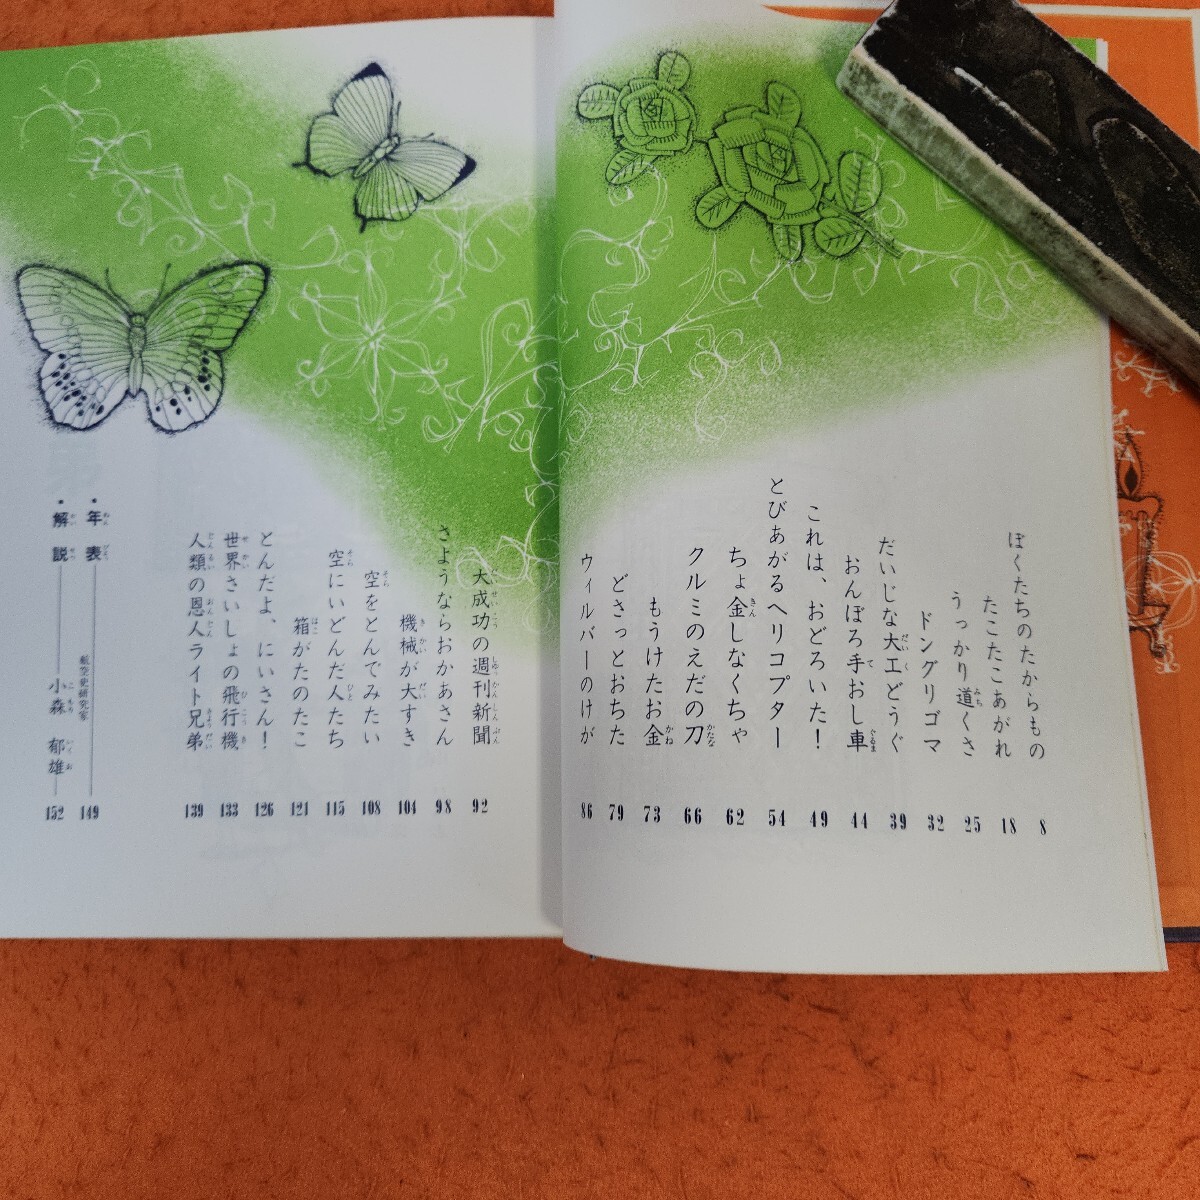 ぼくたちのたからもの 8
たこたこあがれ 18
うっかり道くさ 25
ドングリゴマ 32
だいじな大工どうぐ 39
おんぼろ手おし車 44
これは、おどろいた! 49
とびあがるヘリコプター 54
ちょ金しなくちゃ 62
クルミのえだの刀 66
もうけたお金 73
どさっとおちた 79
ウィルバーのけが 86
大成功の週刊新聞 92
さようならおかあさん 98
機械が大すき 104
空をとんでみたい 108
空にいどんだ人たち 115
箱がたのたこ 121
とんだよ、にいさん! 126
世界さいしょの飛行機 133
人類の恩人ライト兄弟 139
・年表 149
・解説 航空史研究家 小森郁雄 152